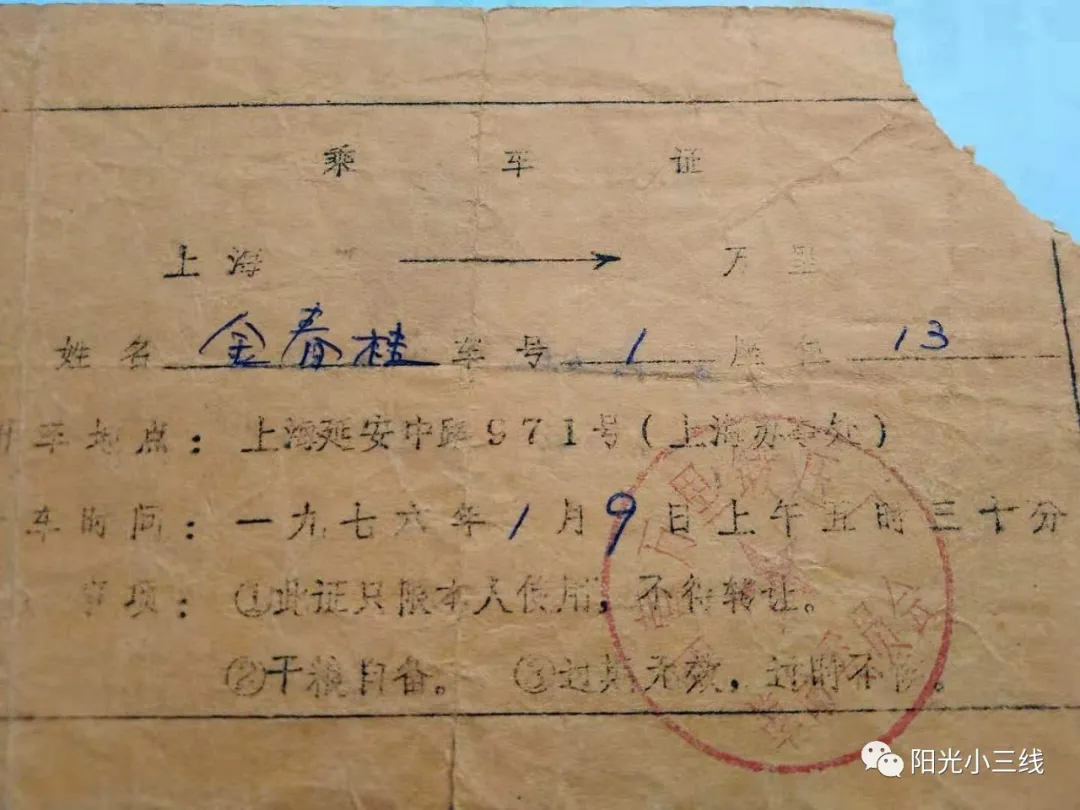 乘车证
上海 → 万里
姓名 金春桂 车号 1 座位 13
车地点：上海延安中路971号(上海办事处)
车时间：一九七六年1月9日上午五时三十分
事项：①此证只限本人使用，不得转让。
②干粮自备。 ③过期无效，过时不候。
万里
革命委员会
阳光小三线